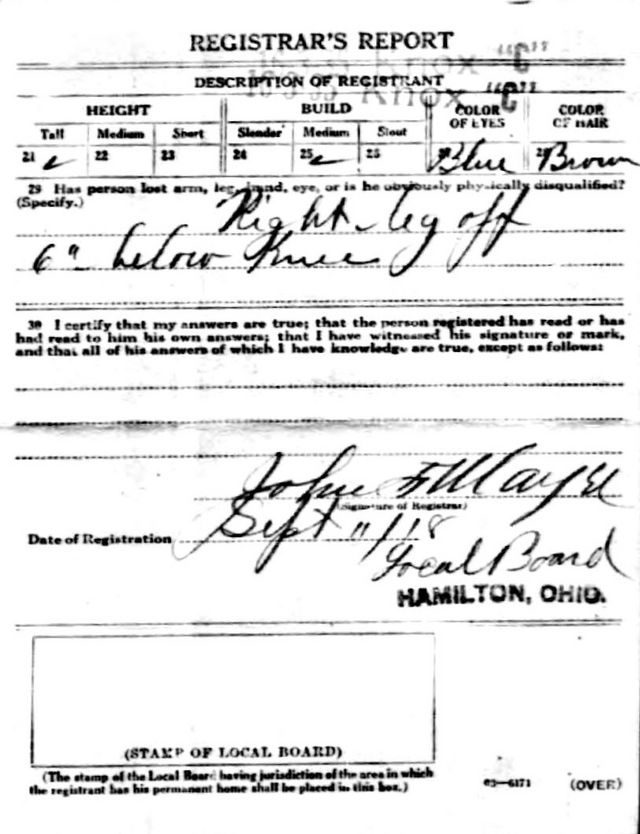 REGISTRAR'S REPORT
Knox "C"
Knox "C"
DESCRIPTION OF REGISTRANT
HEIGHT BUILD COLOR OF EYES COLOR OF HAIR
Tall Medium Short Slender Medium Stout
21 ✓ 22 23 24 25 ✓ 26 Blue Brown
29 Has person lost arm, leg, hand, eye, or is he obviously physically disqualified?
(Specify.) Right leg off
6" below Knee
30 I certify that my answers are true; that the person registered has read or has
had read to him his own answers; that I have witnessed his signature or mark,
and that all of his answers of which I have knowledge are true, except as follows:
John F
(Signature of Registrar)
Date of Registration Sept 11/18
Local Board
HAMILTON, OHIO.
(STAMP OF LOCAL BOARD)
(The stamp of the Local Board having jurisdiction of the area in which
the registrant has his permanent home shall be placed in this box.)
03—6171 (OVER)